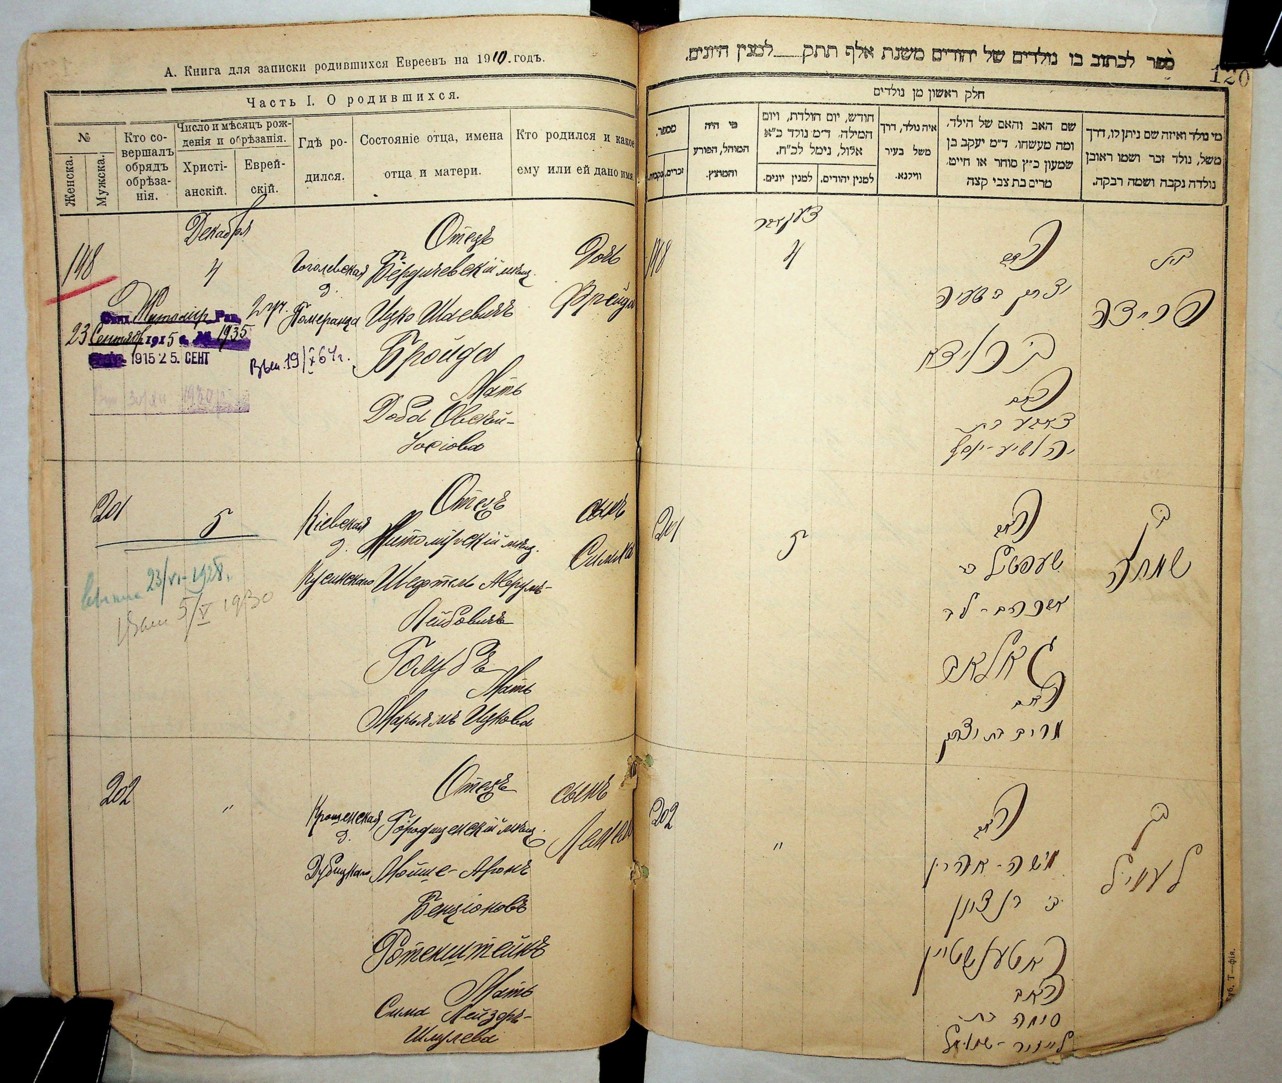 А. Книга для записки родившихся Евреевъ на 1910. годъ.
Часть I. О родившихся.
№
Женска.
Мужска.
Кто со-
вершалъ
обрядъ
обрѣза-
нія.
Число и мѣсяцъ рож-
денія и обрѣзанія.
Христі-
анскій.
Еврей-
скій.
Гдѣ ро-
дился.
Состояніе отца, имена
отца и матери.
Кто родился и какое
ему или ей дано имя
Декабря
198
4
Гоголевская
д.
Померанца
Отецъ
Бердичевскій мѣщ.
Ицко Шаевичъ
Бройда
Мать
Доба Овсей-
Іосіова
Дочь
Фрейда
Житомір Рав.
23 Сентября 1915 г. № 1935
1915 25. СЕНТ
201
5
Кіевская
д.
Отецъ
Житомірскій мѣщ.
Шефтель Аврумъ-
Лейбовичъ
Голубъ
Мать
Марьямъ Ицкова
сынъ
Симха
23/VI-1928.
5/V 1930
202
"
д.
Дубицкаго
Отецъ
Городищенскій мѣщ.
Мойше-Аронъ
Бенціоновъ
Ротенштейнъ
Мать
Сима Лейзоръ-
Шмулева
сынъ
120
ספר לכתוב בו נולדים של יהודים משנת אלף תתק למנין היונים.
חלק ראשון מן נולדים
מספר.
זכרים.
נקבות.
מי היה
המוהל, הפורע
והמוצץ.
חודש, יום הולדת, ויום
המילה. ד״מ נולד כ״א
אלול, נימל לכ״ח.
למנין יונים.
למנין יהודים.
איה נולד, דרך
משל בעיר
ווילנא.
שם האב והאם של הילד,
ומה מעשהו. ד״מ יעקב בן
שמעון כ״ץ סוחר או חייט.
מרים בת צבי קצה
מי נולד ואיזה שם ניתן לו, דרך
משל, נולד זכר ושמו ראובן
נולדה נקבה ושמה רבקה.
דעקאבר
198
4
האב
יצחק ב״ר ישעיה
ברוידא
האם
דאבע בת
יהושיע-יוסף
בת
פריידא
201
5
האב
שעפטיל ב״ר
אברהם-ליב
גאלאב
האם
מרים בת יצחק
בן
שמחה
202
"
האב
משה-אהרן
ב״ר בן ציון
ראטענשטיין
האם
סימה בת
לייזור-שמואל
בן
לעמיל